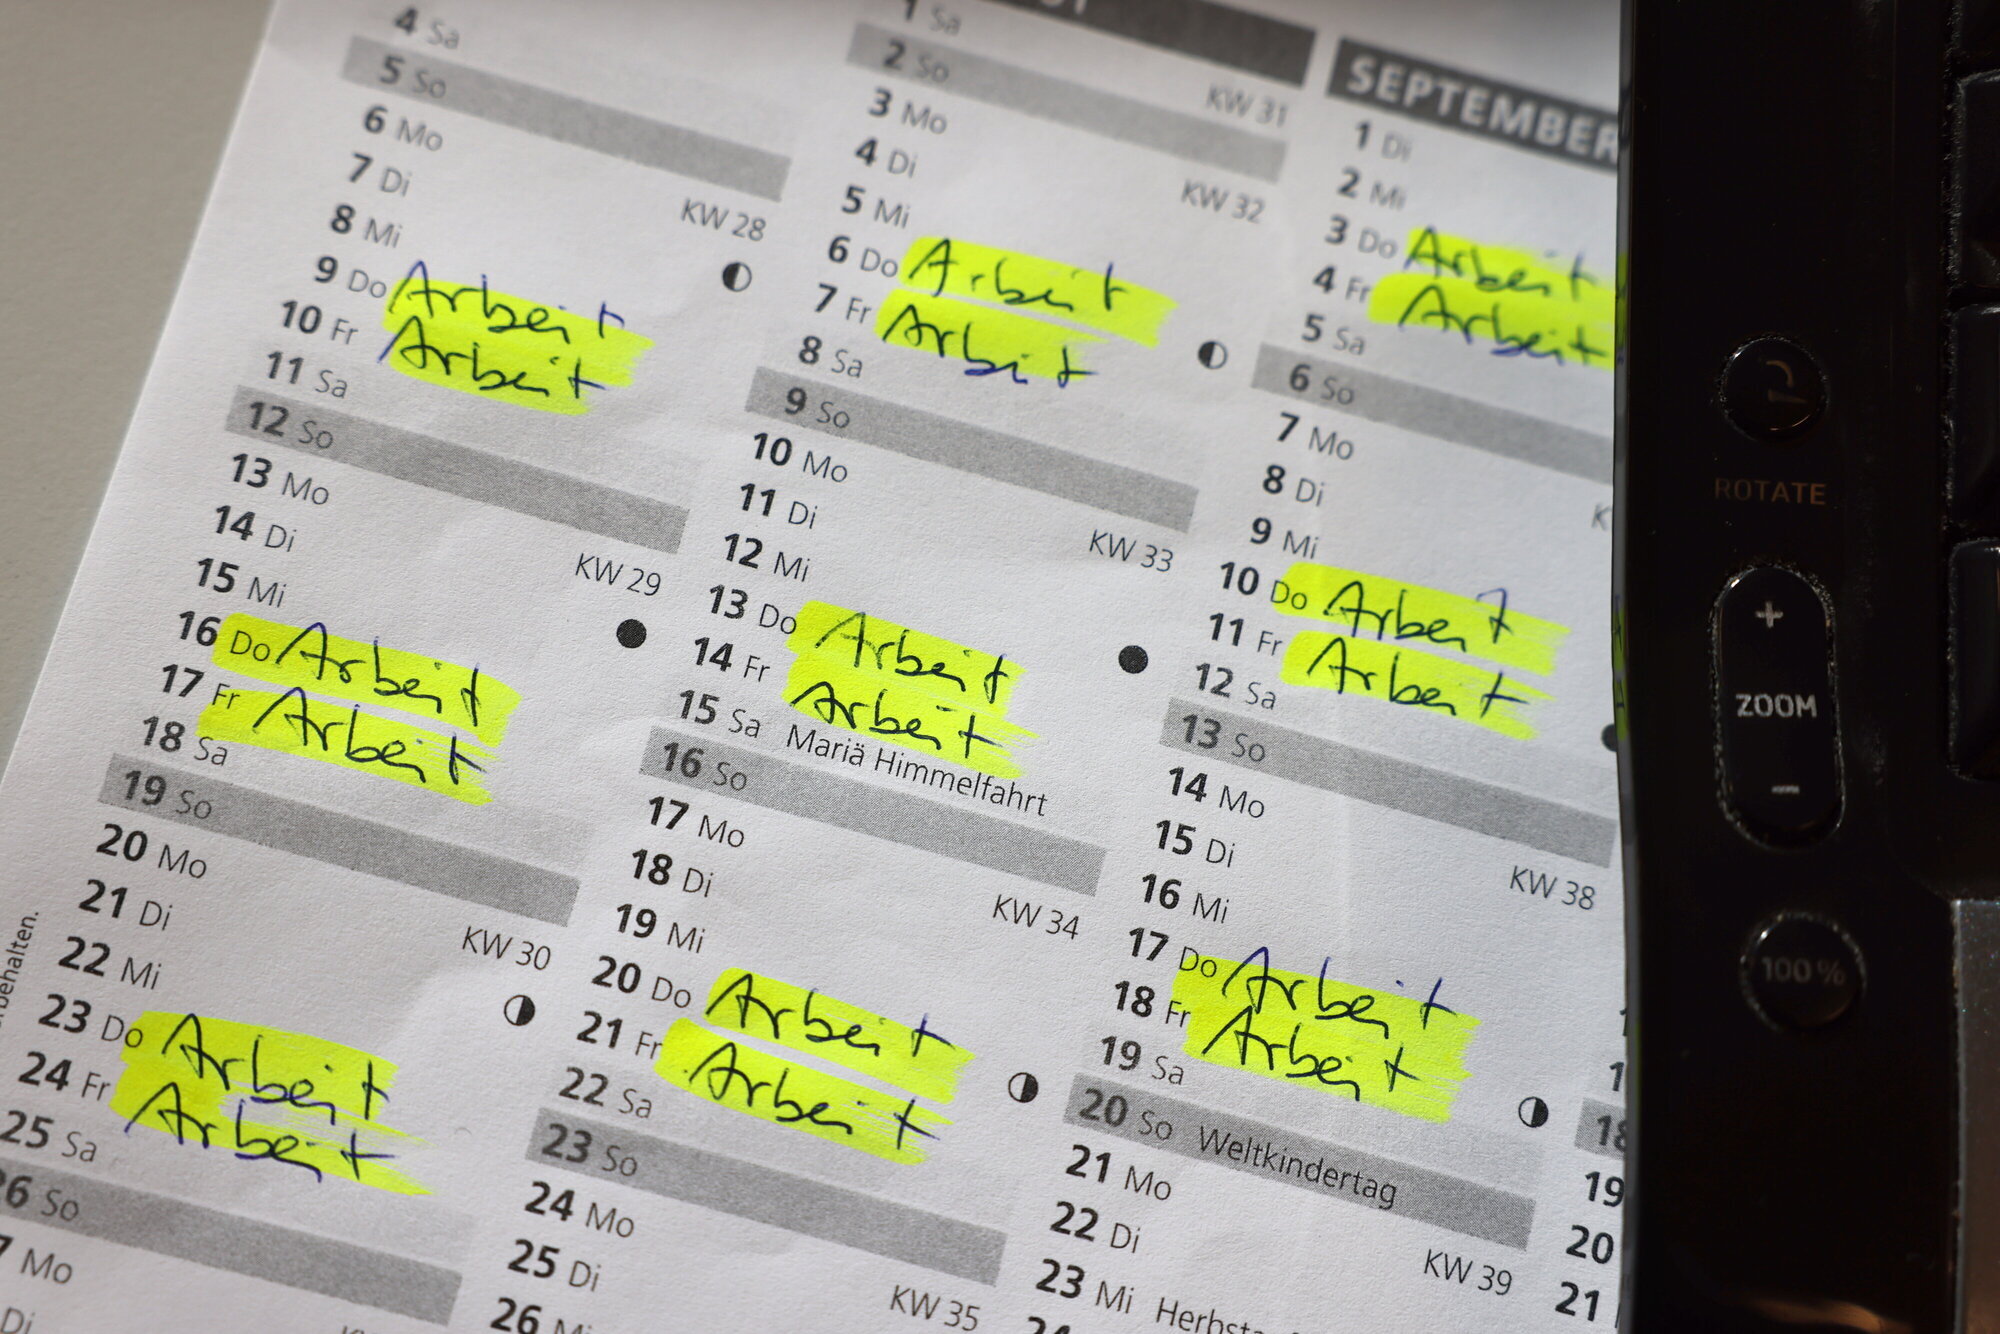 4 Sa
5 So
6 Mo
KW 28
7 Di
8 Mi
9 Do Arbeit
10 Fr Arbeit
11 Sa
12 So
13 Mo
KW 29
14 Di
15 Mi
16 Do Arbeit
17 Fr Arbeit
18 Sa
19 So
20 Mo
KW 30
21 Di
22 Mi
23 Do Arbeit
24 Fr Arbeit
25 Sa
26 So
Mo
Di
1 Sa
KW 31
2 So
3 Mo
KW 32
4 Di
5 Mi
6 Do Arbeit
7 Fr Arbeit
8 Sa
9 So
10 Mo
KW 33
11 Di
12 Mi
13 Do Arbeit
14 Fr Arbeit
15 Sa Mariä Himmelfahrt
16 So
17 Mo
KW 34
18 Di
19 Mi
20 Do Arbeit
21 Fr Arbeit
22 Sa
23 So
24 Mo
KW 35
25 Di
26 Mi
SEPTEMBER
1 Di
2 Mi
3 Do Arbeit
4 Fr Arbeit
5 Sa
6 So
7 Mo
8 Di
9 Mi
10 Do Arbeit
11 Fr Arbeit
12 Sa
13 So
14 Mo
KW 38
15 Di
16 Mi
17 Do Arbeit
18 Fr Arbeit
19 Sa
20 So Weltkindertag
21 Mo
KW 39
22 Di
23 Mi
18
19
20
21
ROTATE
+
ZOOM
-
100 %